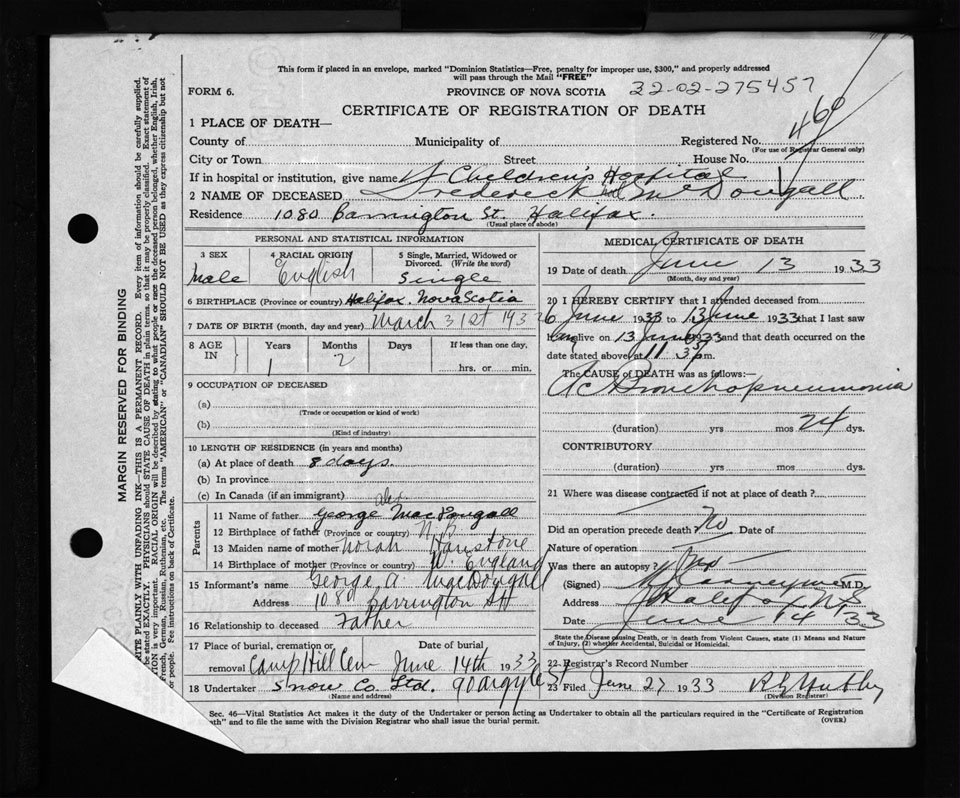 This form if placed in an envelope, marked "Dominion Statistics—Free, penalty for improper use, $300," and properly addressed
will pass through the Mail "FREE"
FORM 6. PROVINCE OF NOVA SCOTIA 32-02-275457
CERTIFICATE OF REGISTRATION OF DEATH
1 PLACE OF DEATH— 460
County of Municipality of Registered No.
(For use of Registrar General only)
City or Town Street House No.
If in hospital or institution, give name Childrens Hospital
2 NAME OF DECEASED Frederick McDougall
Residence 1080 Barrington St. Halifax.
(Usual place of abode)
PERSONAL AND STATISTICAL INFORMATION
3 SEX 4 RACIAL ORIGIN 5 Single, Married, Widowed or
Divorced. (Write the word)
Male English Single
6 BIRTHPLACE (Province or country) Halifax. Nova Scotia
7 DATE OF BIRTH (month, day and year) March 31st 1932
8 AGE IN Years Months Days If less than one day,
1 2 hrs. or min.
9 OCCUPATION OF DECEASED
(a)
(Trade or occupation or kind of work)
(b)
(Kind of industry)
10 LENGTH OF RESIDENCE (in years and months)
(a) At place of death 8 days.
(b) In province
(c) In Canada (if an immigrant)
Parents
11 Name of father George Alex MacDougall
12 Birthplace of father (Province or country) N.B.
13 Maiden name of mother Norah
14 Birthplace of mother (Province or country) England
15 Informant's name George A MacDougall
Address 1080 Barrington St
16 Relationship to deceased Father
17 Place of burial, cremation or Date of burial
removal Camp Hill Cem June 14th 1933
18 Undertaker Snow Co. Ltd. 90 Argyle St
(Name and address)
MEDICAL CERTIFICATE OF DEATH
19 Date of death June 13 1933
(Month, day and year)
20 I HEREBY CERTIFY that I attended deceased from
6 June 1933 to 13 June 1933 that I last saw
him alive on 13 June 1933 and that death occurred on the
date stated above at 11 35 p.m.
The CAUSE of DEATH was as follows:—
Ac Bronchopneumonia
(duration) yrs mos 24 dys.
CONTRIBUTORY
(duration) yrs mos dys.
21 Where was disease contracted if not at place of death?
Did an operation precede death? No Date of
Nature of operation
Was there an autopsy? No
(Signed) M.D.
Address Halifax N.S
Date June 14 33
State the Disease causing Death, or in death from Violent Causes, state (1) Means and Nature
of Injury, (2) whether Accidental, Suicidal or Homicidal.
22 Registrar's Record Number
23 Filed June 27 1933
(Division Registrar)
Sec. 46—Vital Statistics Act makes it the duty of the Undertaker or person acting as Undertaker to obtain all the particulars required in the "Certificate of Registration
and to file the same with the Division Registrar who shall issue the burial permit. (OVER)
MARGIN RESERVED FOR BINDING
WRITE PLAINLY WITH UNFADING INK—THIS IS A PERMANENT RECORD. Every item of information should be carefully supplied.
be stated EXACTLY. PHYSICIANS should STATE CAUSE OF DEATH in plain terms, so that it may be properly classified. Exact statement of
is very important. RACIAL ORIGIN will be described by stating to what people or race the deceased person belonged, whether English, Irish,
French, German, Russian, Ruthenian, etc. The terms "AMERICAN" or "CANADIAN" SHOULD NOT BE USED as they express citizenship but not
or people. See instructions on back of Certificate.